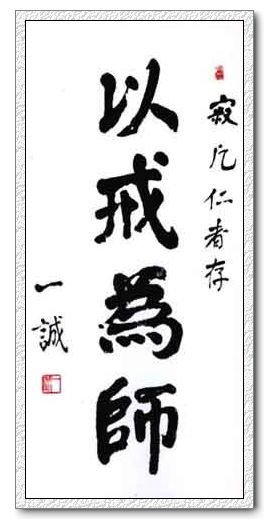 寂凡仁者存
以戒為師
一誠